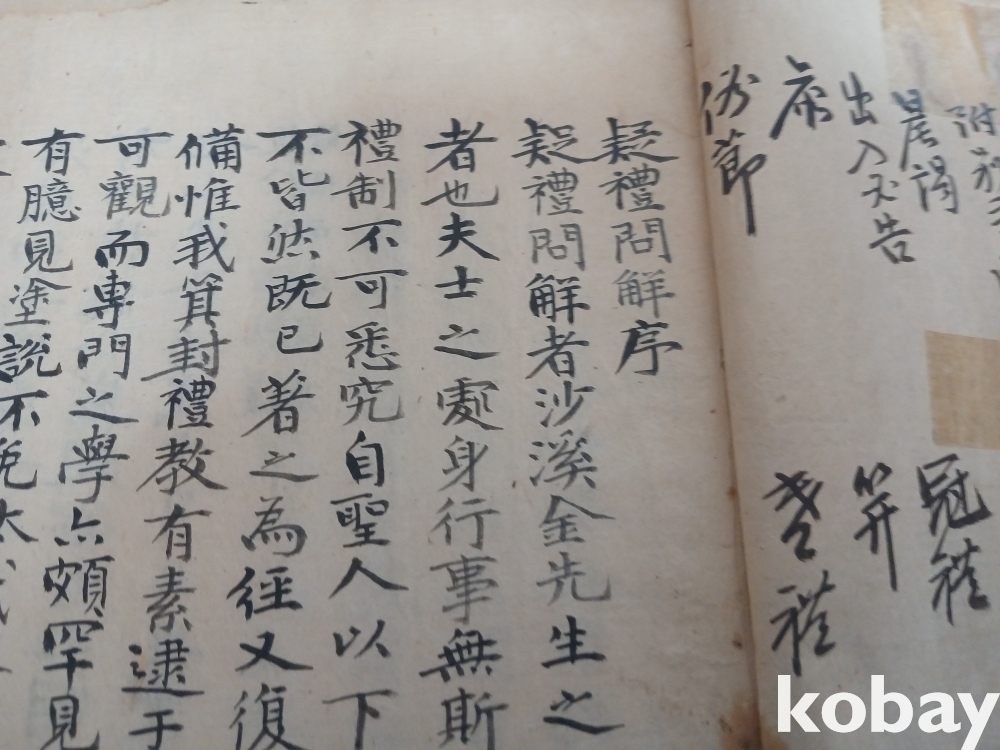 晨謁
出入必告
俗節
冠禮
笄
昏禮
疑禮問解序
疑禮問解者沙溪金先生之
者也夫士之處身行事無斯
禮制不可悉究自聖人以下
不皆然旣已著之為經又復
備惟我箕封禮教有素逮于
可觀而專門之學亦頗罕見
有臆見塗說不免太
kobay